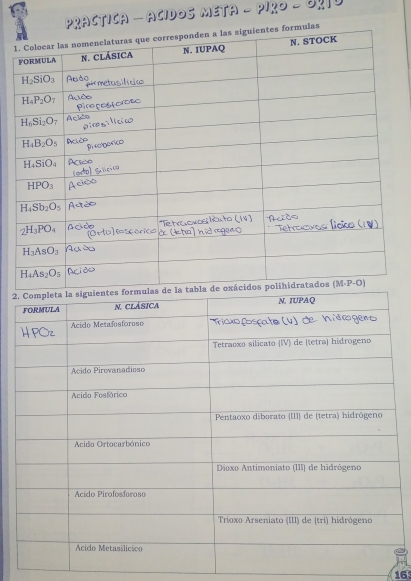 PRÁCTICA - ACIDOS META - PIRO - ORTO
1. Colocar las nomenclaturas que corresponden a las siguientes formulas
FORMULA N. CLÁSICA N. IUPAQ N. STOCK
H₂SiO₃ Acido metasilicico
H₄P₂O₇ Acido pirofosforoso
H₆Si₂O₇ Acido pirosilicico
H₄B₂O₅ Acido piroborico
H₄SiO₄ Acido (orto) silicico
HPO₃ Acido
H₄Sb₂O₅ Acido
2H₃PO₄ Acido (Orto)fosforico Tetraoxosilicato (IV) de (tetra) hidrogeno Acido Tetraoxosilicico (IV)
H₃AsO₃ Acido
H₄As₂O₅ Acido
2. Completa la siguientes formulas de la tabla de oxácidos polihidratados (M-P-O)
FORMULA N. CLÁSICA N. IUPAQ
HPO₂ Acido Metafosforoso Trioxofosfato (V) de hidrogeno
Tetraoxo silicato (IV) de (tetra) hidrógeno
Acido Pirovanadioso
Acido Fosfórico
Pentaoxo diborato (III) de (tetra) hidrógeno
Acido Ortocarbónico
Dioxo Antimoniato (III) de hidrógeno
Acido Pirofosforoso
Trioxo Arseniato (III) de (tri) hidrógeno
Acido Metasilicico